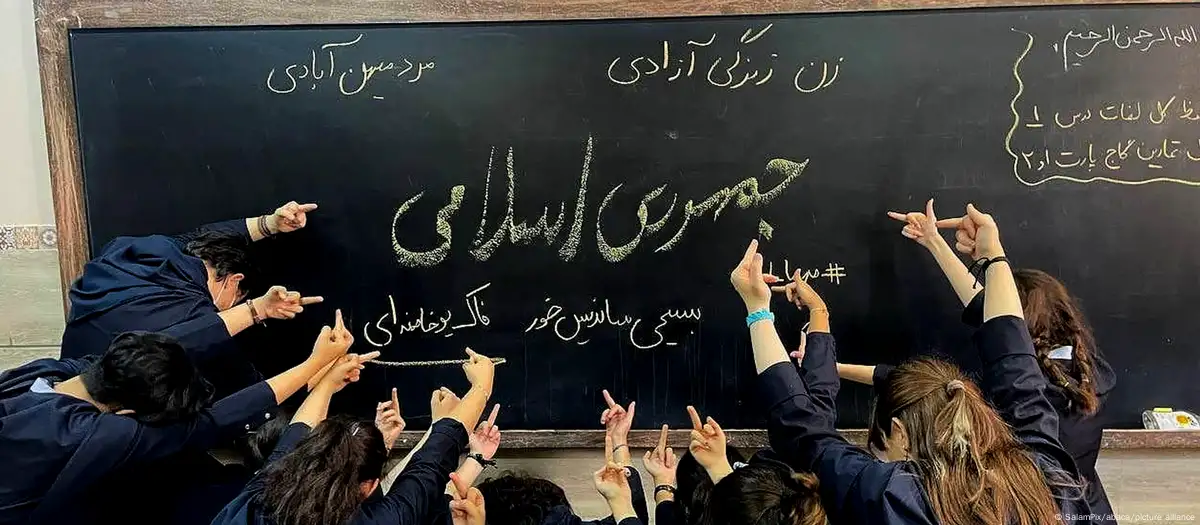 زن زندگی آزادی
مرد میهن آبادی
جمهوری اسلامی
#مهسا
بسیجی ساندیس خور
فاک یو خامنه ای
الله الرحمن الرحیم
کل لغات درس 1
تمارین گاج پارت 1 و 2
© SalamPix/abaca/picture alliance